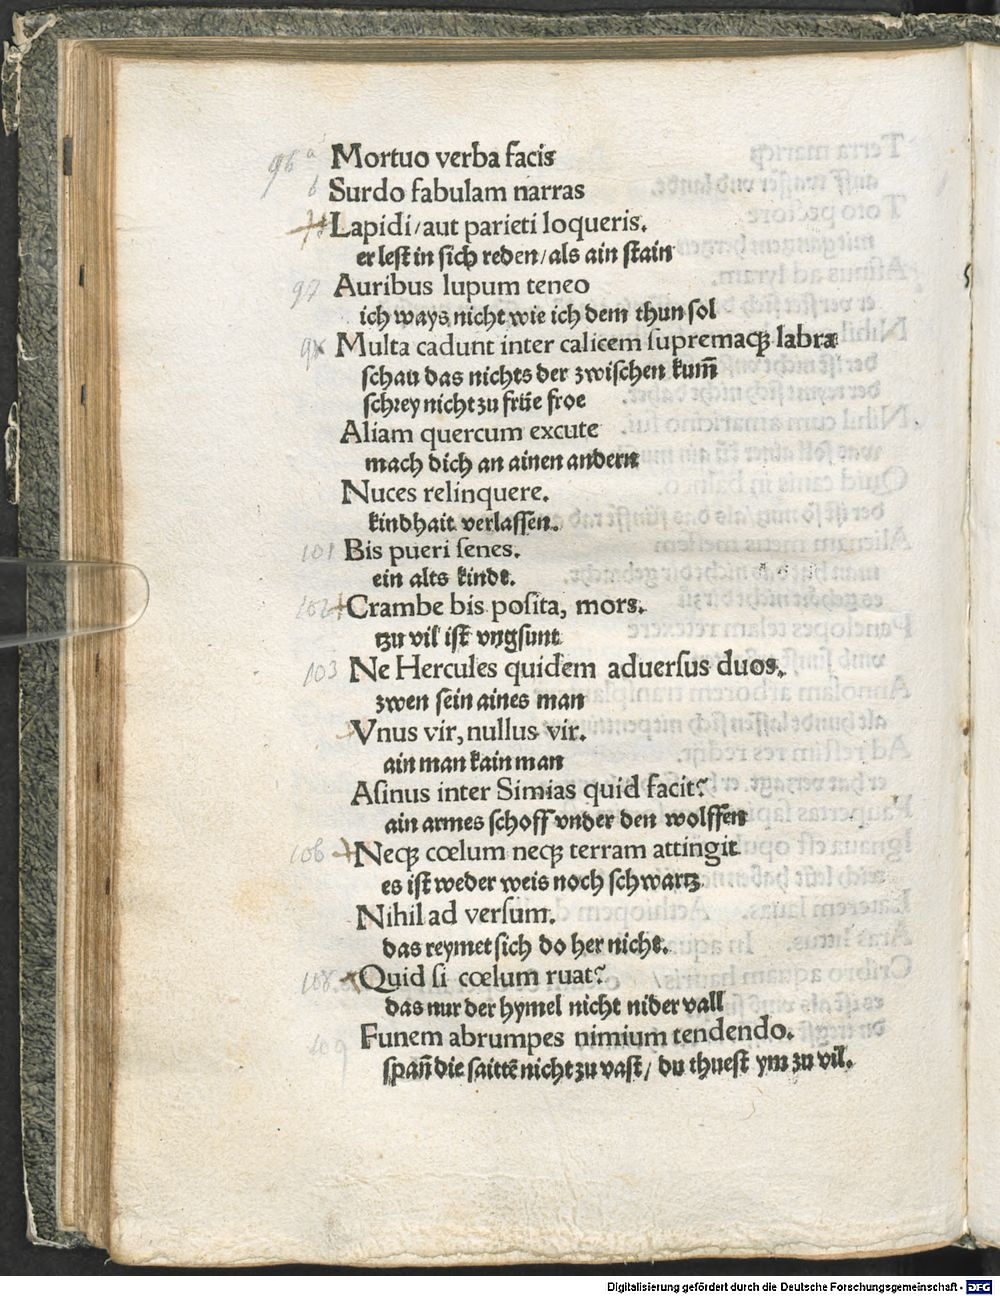 96 a Mortuo verba facis
b Surdo fabulam narras
Lapidi/aut parieti loqueris.
er lest in sich reden/als ain stain
97 Auribus lupum teneo
ich ways nicht wie ich dem thun sol
98 Multa cadunt inter calicem supremaqꝫ labra
schau das nichts der zwischen kum̄
schrey nicht zu früe froe
Aliam quercum excute
mach dich an ainen andern
Nuces relinquere.
kindhait verlassen.
101 Bis pueri senes.
ein alts kindt.
102 Crambe bis posita, mors.
tzu vil ist vngsunt
103 Ne Hercules quidem adversus duos.
zwen sein aines man
Vnus vir, nullus vir.
ain man kain man
Asinus inter Simias quid facit?
ain armes schoff vnder den wolffen
106 Neqꝫ cœlum neqꝫ terram attingit
es ist weder weis noch schwartz
Nihil ad versum.
das reymet sich do her nicht.
108. Quid si cœlum ruat?
das nur der hymel nicht nider vall
109 Funem abrumpes nimium tendendo.
span̄ die saittē nicht zu vast/ du thuest ym zu vil.
Digitalisierung gefördert durch die Deutsche Forschungsgemeinschaft - DFG